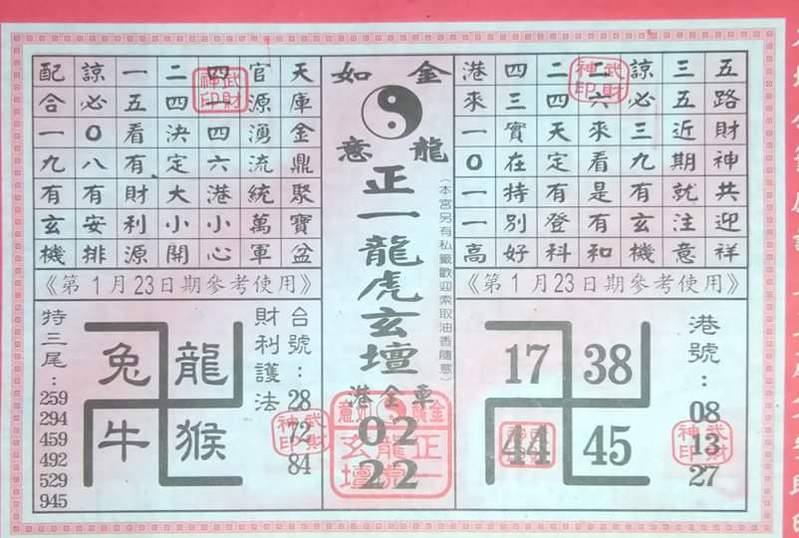 五路財神共迎祥
三五近期就注意
諒必三九有玄機
二六來看是有和
二四天定有登科
四三實在特別好
港來一0一一高
武財神印
《第1月23日期參考使用》
港號：
08
13
27
武財神印
17 38
44 45
金龍
如意
正一龍虎玄壇
(本宮另有私籤歡迎索取油香隨意)
港金車
02
22
金龍如意
正一龍虎玄壇
天庫金鼎聚寶盆
官源湧流統萬軍
四一四六港小心
二四決定大小開
一五看有財利源
諒必0八有安排
配合一九有玄機
武財神印
《第1月23日期參考使用》
台號：
28
72
84
財利護法
武財神印
兔龍
牛猴
特三尾：
259
294
459
492
529
945